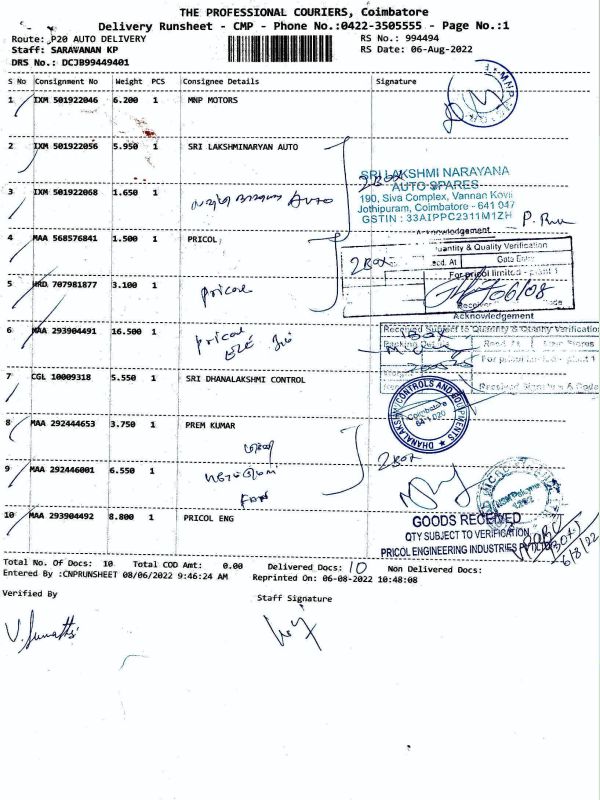 THE PROFESSIONAL COURIERS, Coimbatore
Delivery Runsheet - CMP - Phone No.:0422-3505555 - Page No.:1
Route: P20 AUTO DELIVERY
RS No.: 994494
Staff: SARAVANAN KP
RS Date: 06-Aug-2022
DRS No.: DCJB99449401
S No Consignment No Weight PCS Consignee Details Signature
1 IXM 501922046 6.200 1 MNP MOTORS
2 IXM 501922056 5.950 1 SRI LAKSHMINARYAN AUTO
2 Box
SRI LAKSHMI NARAYANA
AUTO SPARES
190, Siva Complex, Vannan Kovil
Jothipuram, Coimbatore - 641 047
GSTIN : 33AIPPC2311M1ZH
3 IXM 501922068 1.650 1
Auto
Acknowledgement
4 MAA 568576841 1.500 1 PRICOL
Quantity & Quality Verification
2 Box
Gate Entry
For pricol limited - plant 1
5 HRD 707981877 3.100 1
pricol
06/08
Acknowledgement
6 MAA 293904491 16.500 1
pricol
Received Subject to Quantity & Quality Verification
For pricol limited - plant 1
Received Signature & Code
7 CGL 10009318 5.550 1 SRI DHANALAKSHMI CONTROL
DHANALAKSHMI CONTROLS AND EQUIPMENTS
Coimbatore
641 020
8 MAA 292444653 3.750 1 PREM KUMAR
2 Box
9 MAA 292446001 6.550 1
10 MAA 293904492 8.800 1 PRICOL ENG
GOODS RECEIVED
QTY SUBJECT TO VERIFICATION
PRICOL ENGINEERING INDUSTRIES PVT LTD
6/8/22
Total No. Of Docs: 10 Total COD Amt: 0.00 Delivered Docs: 10 Non Delivered Docs:
Entered By :CNPRUNSHEET 08/06/2022 9:46:24 AM Reprinted On: 06-08-2022 10:48:08
Verified By
Staff Signature